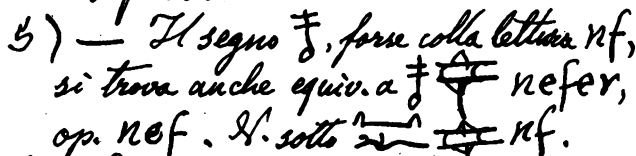 5) — Il segno 𓄤, forse colla lettura nf,
si trova anche equiv. a 𓄤 nefer,
op. nof. V. sotto nf.